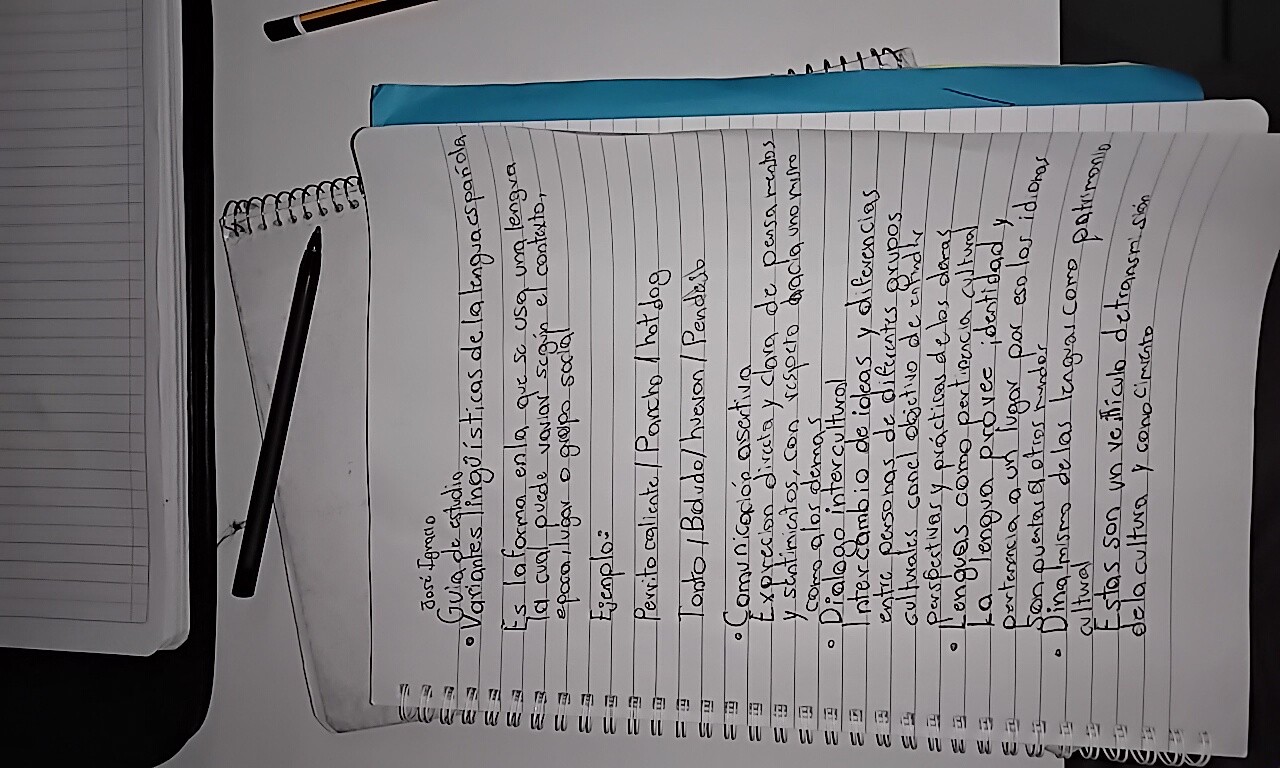 José Ignacio
Guía de estudio
• Variantes lingüísticas de la lengua española
Es la forma en la que se usa una lengua
la cual puede variar según el contexto,
epoca, lugar o grupo social
Ejemplo::
Perrito caliente / Pancho / hot dog
Tonto / Boludo / huevon / Pendejo
• Comunicación asertiva
Exprecion directa y clara de pensamientos
y sentimientos, con respeto hacia uno mismo
como a los demas
• Dialogo intercultural
Intercambio de ideas y diferencias
entre personas de diferentes grupos
culturales con el objetivo de entender
perspectivas y prácticas de los demas
• Lenguas como pertinencia cultural
La lengua provee identidad y
pertenencia a un lugar por eso los idiomas
son puentes a otros mundos
• Dinamismo de las lenguas como patrimonio
cultural
Estas son un vehículo de transmisión
de la cultura y conocimiento